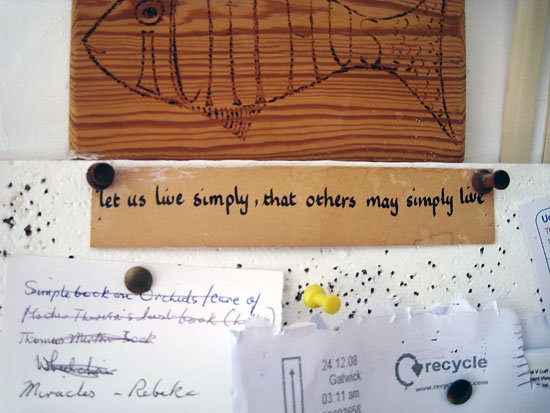 let us live simply, that others may simply live
Simple book on Orchids/care of
Mother Theresa's last book
Thomas Merton book
Wheelchair
Miracles - Rebeka
24.12.08
Gatwick
03:11 am
recycle